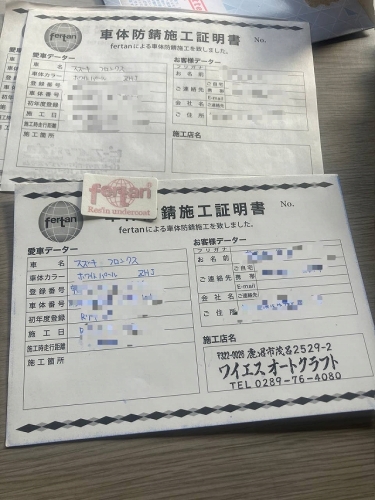 fertan
車体防錆施工証明書
No.
fertanによる車体防錆施工を致しました。
愛車データー
お客様データー
車　名 スズキ フロンクス
車体カラー ホワイトパール ZHJ
登録番号
車体番号
初年度登録
施工日
施工時走行距離
施工箇所
フリガナ
お名前
ご連絡先
携帯
E-mail
会社名
ご連絡先
ご住所
施工店名
fertan
fertan
Resin undercoat
錆施工証明書
No.
fertanによる車体防錆施工を致しました。
愛車データー
お客様データー
車　名 スズキ フロンクス
車体カラー ホワイトパール ZHJ
登録番号
車体番号
初年度登録
施工日
施工時走行距離
施工箇所
フリガナ
お名前
ご連絡先
ご自宅
携帯
E-mail
会社名
ご連絡先
ご住所
施工店名
〒322-0026 鹿沼市茂呂2529-2
ワイエスオートクラフト
TEL 0289-76-4080